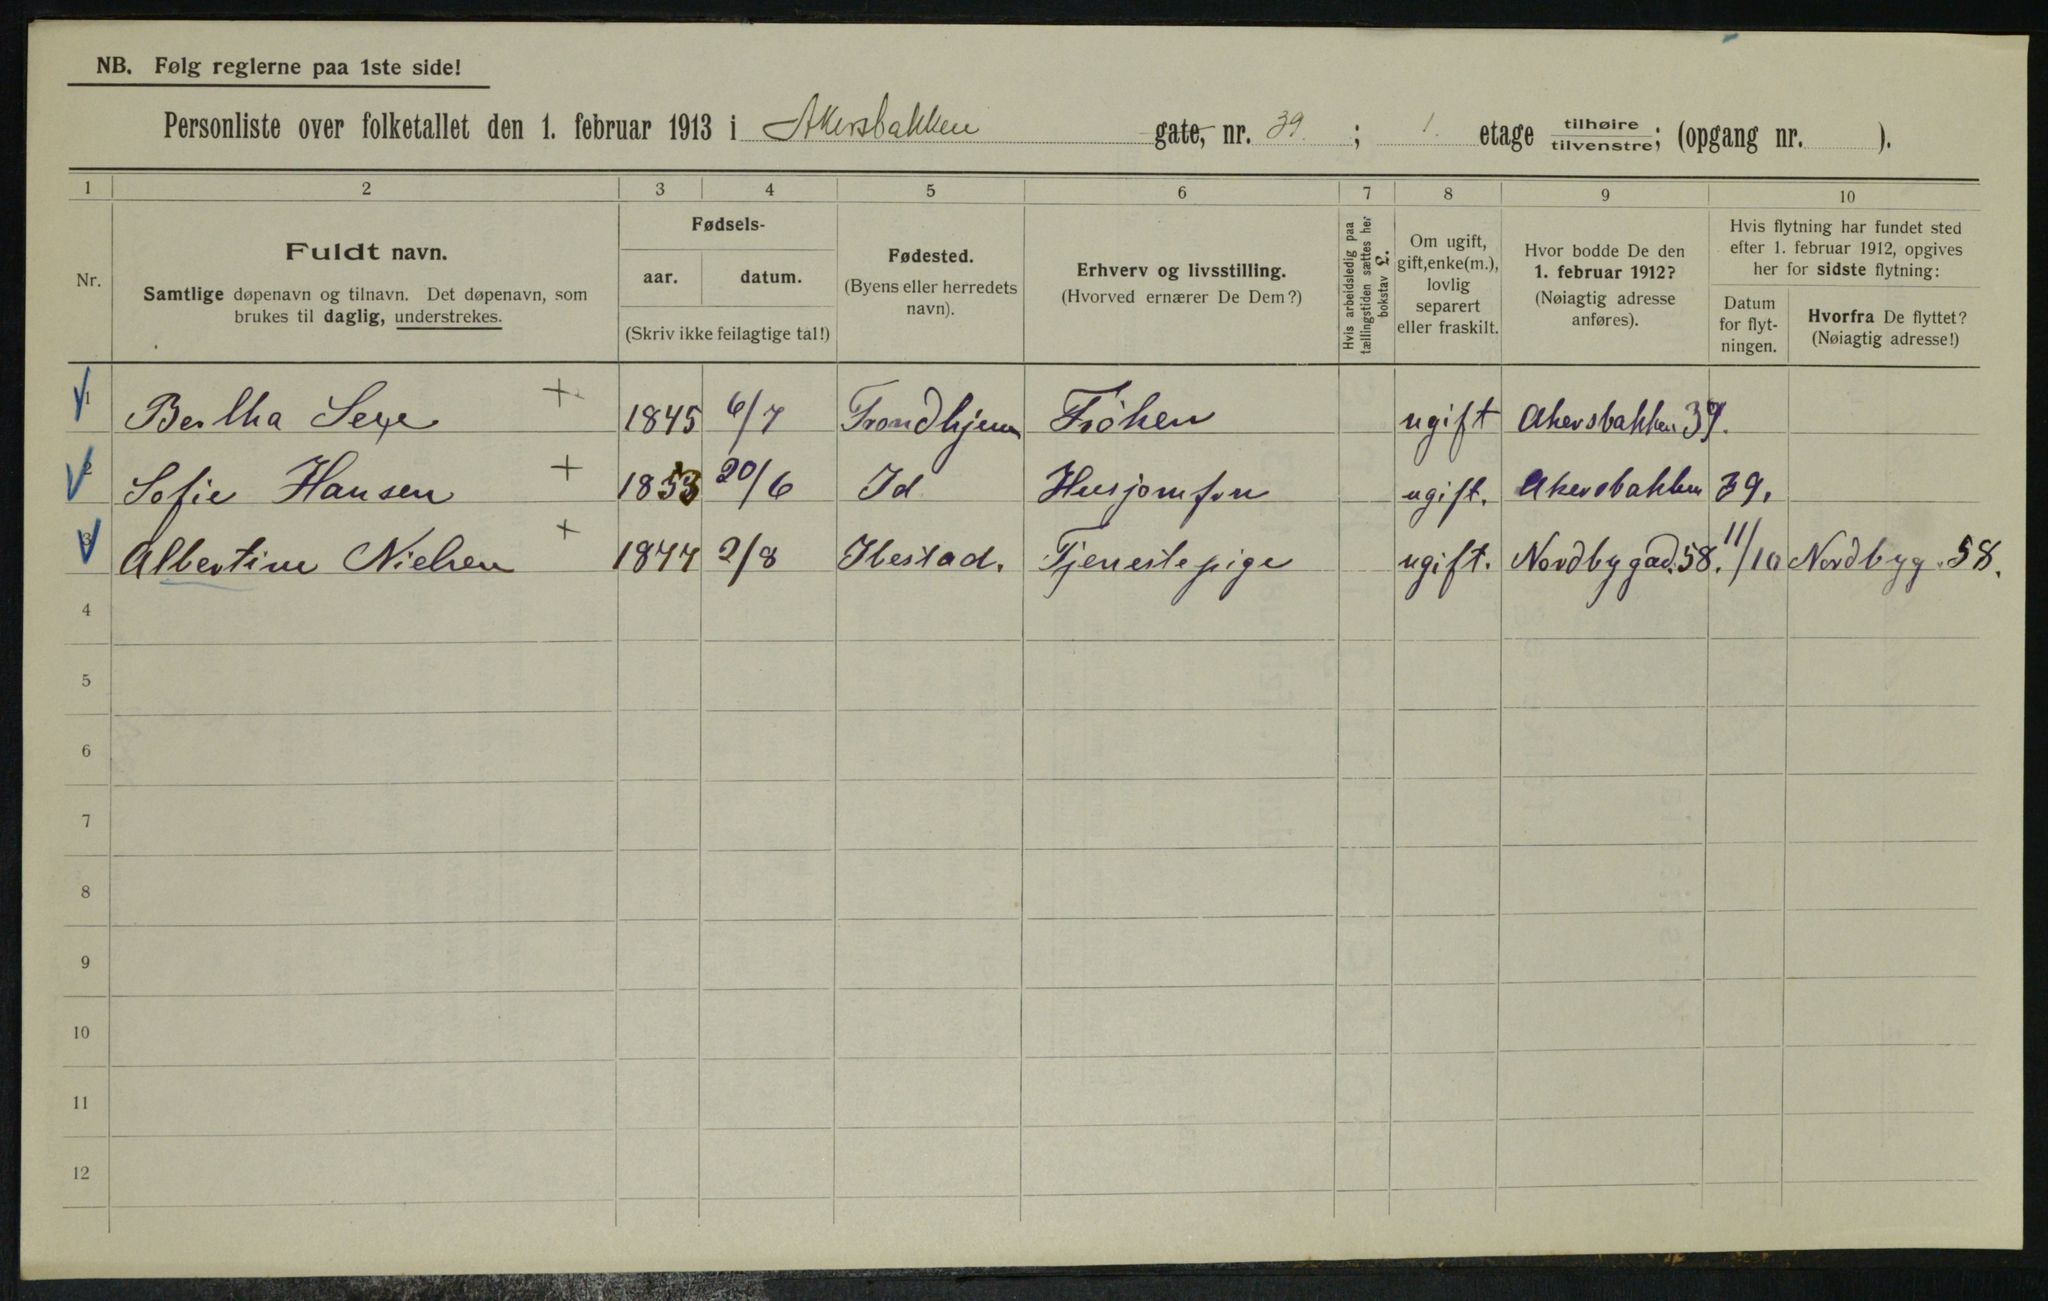 NB. Følg reglerne paa 1ste side!
Personliste over folketallet den 1. februar 1913 i Akersbakken gate, nr. 39. ; 1. etage tilhøire tilvenstre; (opgang nr. ).
1 2 3 4 5 6 7 8 9 10
Nr.
Fuldt navn.
Samtlige døpenavn og tilnavn. Det døpenavn, som
brukes til daglig, understrekes.
Fødsels-
aar. datum.
(Skriv ikke feilagtige tal!)
Fødested.
(Byens eller herredets
navn).
Erhverv og livsstilling.
(Hvorved ernærer De Dem?)
Hvis arbeidsledig paa
tællingstiden sættes her
bokstav L.
Om ugift,
gift, enke(m.),
lovlig
separert
eller fraskilt.
Hvor bodde De den
1. februar 1912?
(Nøiagtig adresse
anføres).
Hvis flytning har fundet sted
efter 1. februar 1912, opgives
her for sidste flytning:
Datum
for flyt-
ningen.
Hvorfra De flyttet?
(Nøiagtig adresse!)
1 Bertha + 1845 6/7 Trondhjem Frøken ugift Akersbakken 39.
2 Sofie Hansen + 1853 20/6 Id Husjomfru ugift. Akersbakken 39.
3 Albertine Nielsen + 1877 2/8 Ibestad. Tjenestepige ugift. Nordbygad. 58. 11/10 Nordbyg. 58.
4
5
6
7
8
9
10
11
12